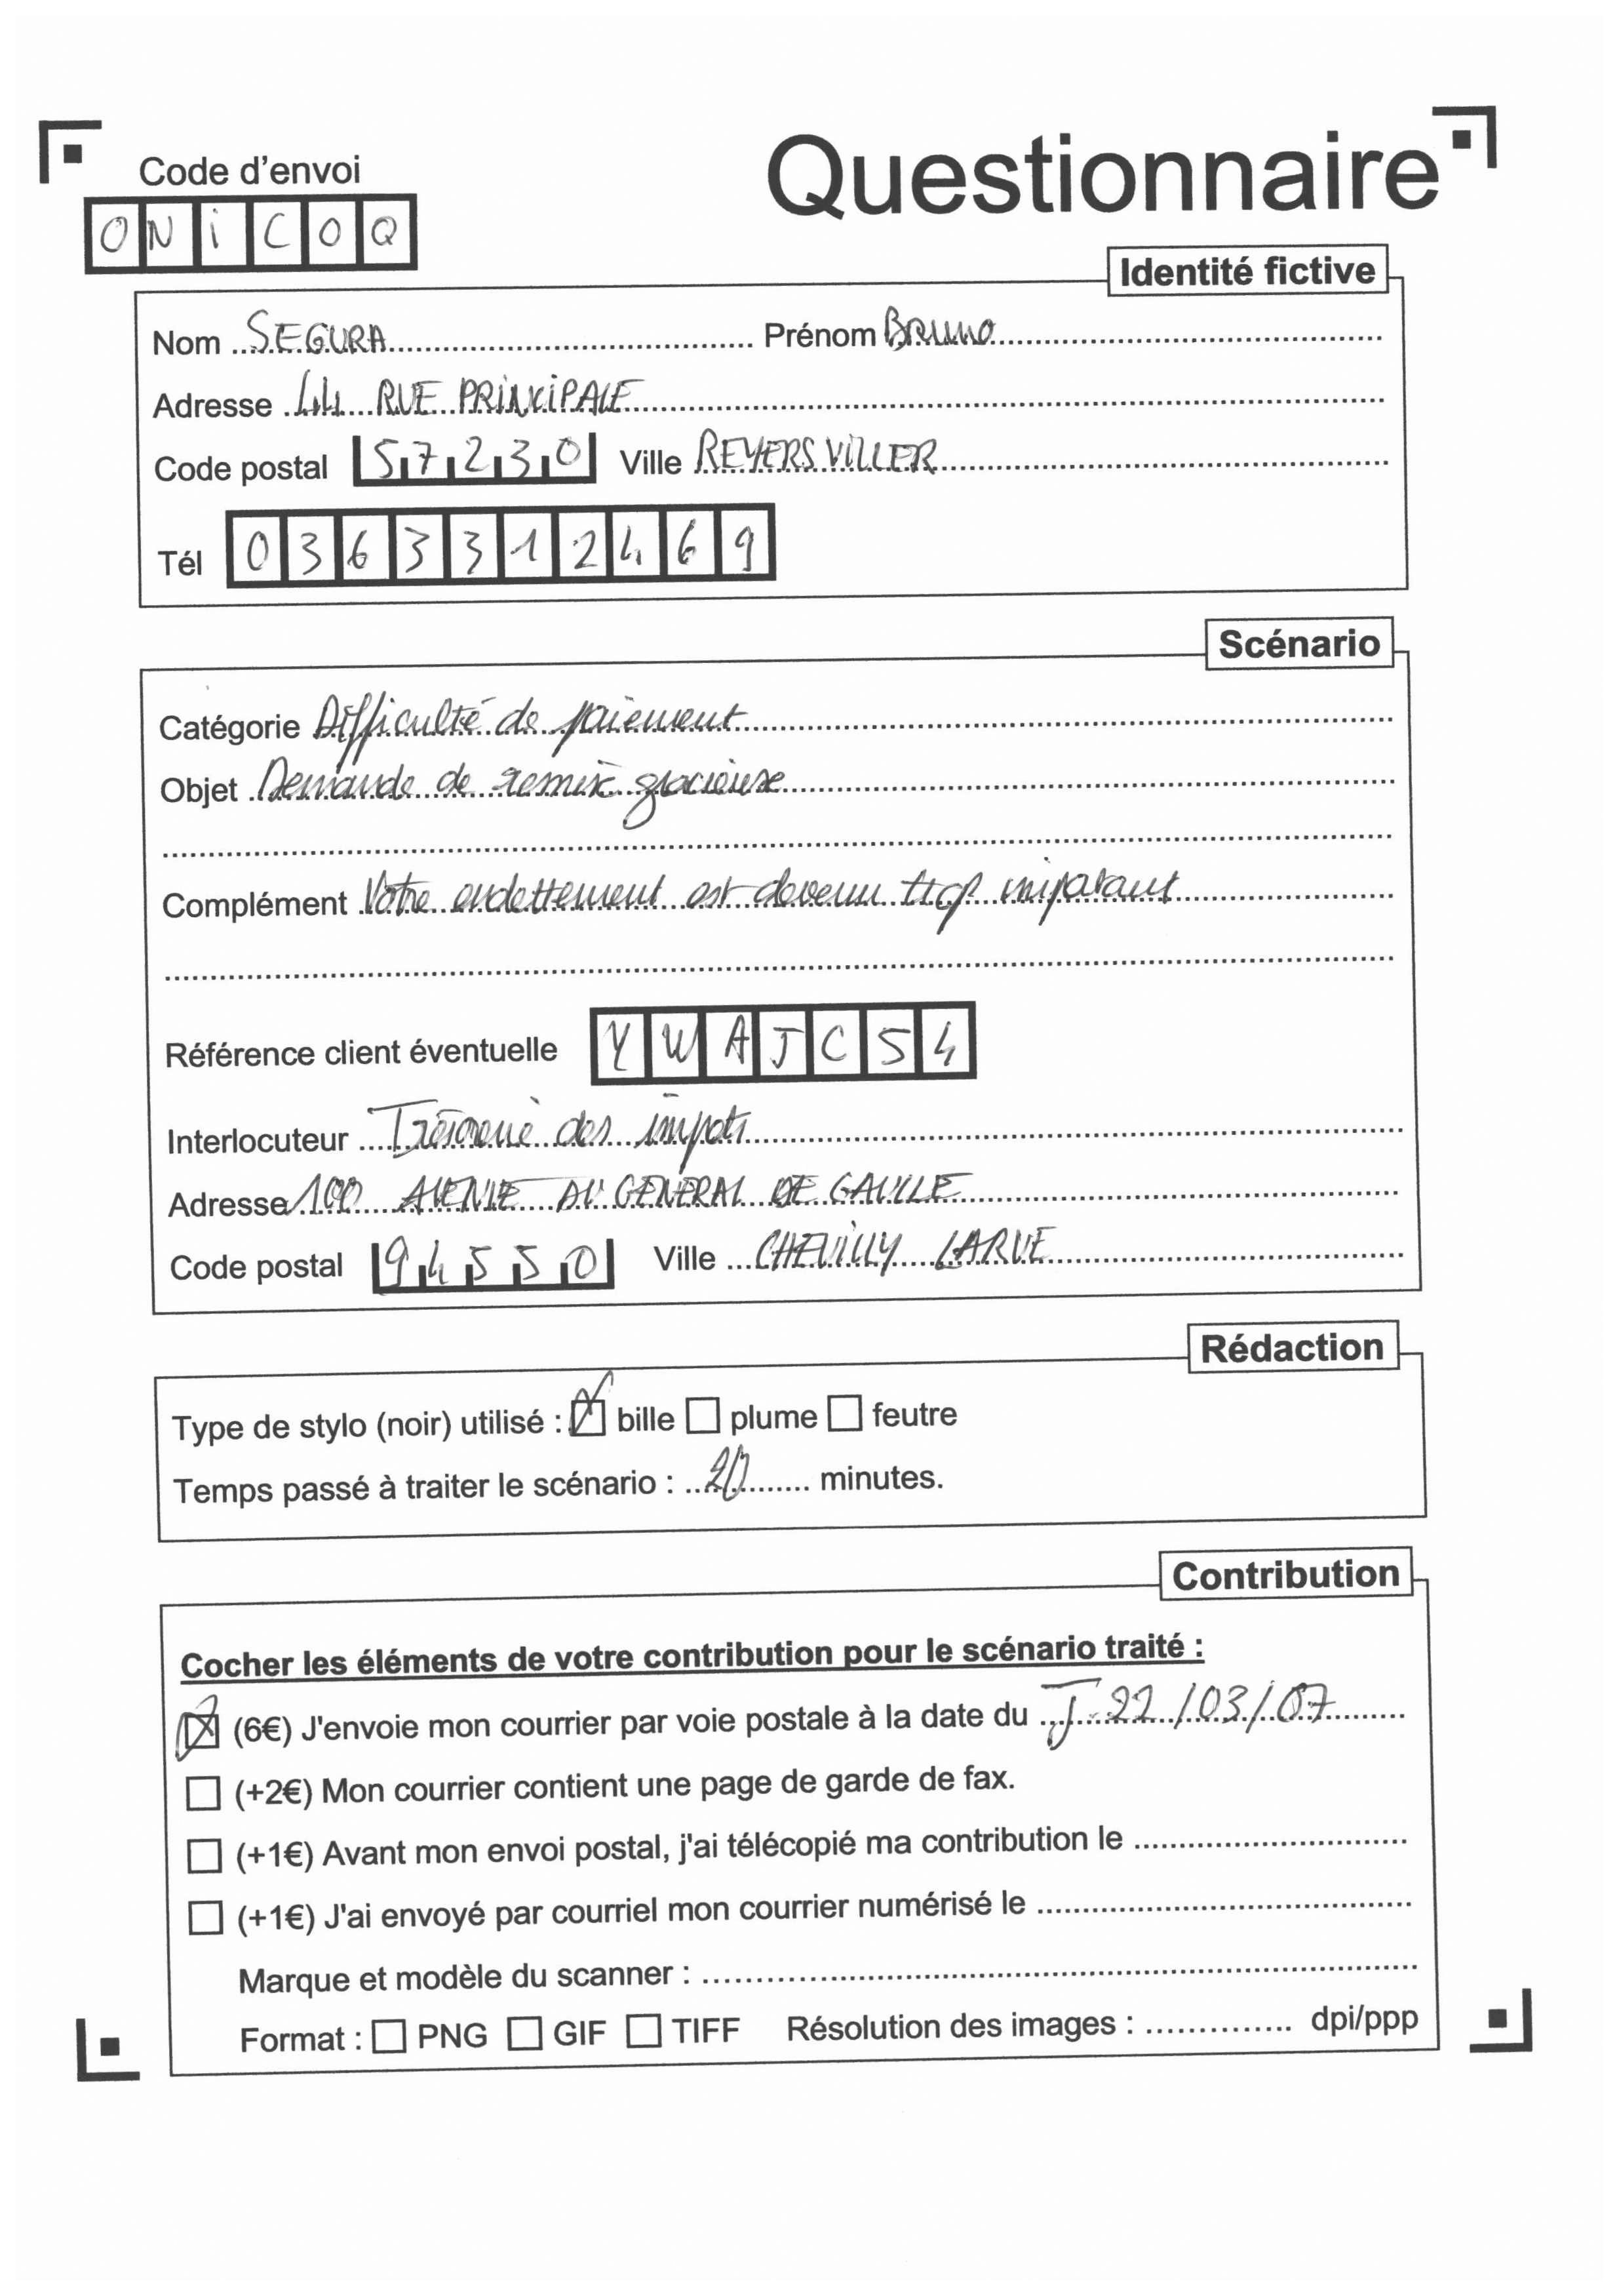 Code d'envoi
Questionnaire
O N i C O Q
Identité fictive
Nom SEGURA Prénom Bruno
Adresse 44 RUE PRiNCiPALE
Code postal 57230 Ville REYERSViLLER
Tél 0363312469
Scénario
Catégorie Difficulté de paiement
Objet Demande de remise gracieuse
Complément Votre endettement est devenu trop important
Référence client éventuelle YWAJC54
Interlocuteur Trésorerie des impots
Adresse 100 AVENUE DU GENERAL DE GAULLE
Code postal 94550 Ville CHEViLLY LARUE
Rédaction
Type de stylo (noir) utilisé : bille plume feutre
Temps passé à traiter le scénario : 20 minutes.
Contribution
Cocher les éléments de votre contribution pour le scénario traité :
(6€) J'envoie mon courrier par voie postale à la date du J 22/03/07
(+2€) Mon courrier contient une page de garde de fax.
(+1€) Avant mon envoi postal, j'ai télécopié ma contribution le
(+1€) J'ai envoyé par courriel mon courrier numérisé le
Marque et modèle du scanner :
Format : PNG GIF TIFF Résolution des images : dpi/ppp